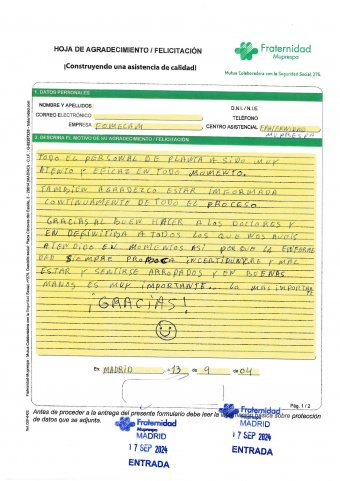 HOJA DE AGRADECIMIENTO / FELICITACIÓN
¡Construyendo una asistencia de calidad!
Fraternidad
Muprespa
Mutua Colaboradora con la Seguridad Social, 275.
1. DATOS PERSONALES
NOMBRE Y APELLIDOS
D.N.I. / N.I.E.
CORREO ELECTRÓNICO
TELÉFONO
EMPRESA FOMECAM
CENTRO ASISTENCIAL FRATERNIDAD
MUPRESPA
2. DESCRIBA EL MOTIVO DE SU AGRADECIMIENTO / FELICITACIÓN
TODO EL PERSONAL DE PLANTA A SIDO MUY
ATENTO Y EFICAS EN TODO MOMENTO.
TAMBIÉN AGRADEZCO ESTAR INFORMADA
CONTINUAMENTE DE TODO EL PROCESO.
GRACIAS AL BUEN HACER A LOS DOCTORES Y
EN DEFINITIVA A TODOS LOS QUE NOS AUEIS
ATENDIDO EN MOMENTOS ASI PORQUE LA ENFERME
DAD SIEMPRE PROBOCA INCERTIDUNBRE Y MAL
ESTAR Y SENTIRSE ARROPADOS Y EN BUENAS
MANOS ES MUY IMPORTANTE... LO MAS IMPORTANTE
¡GRACIAS!
En MADRID a 13 de 9 de 04
Pág. 1 / 2
Antes de proceder a la entrega del presente formulario debe leer la información básica sobre protección
de datos que se adjunta.
Fraternidad
Muprespa
MADRID
17 SEP 2024
ENTRADA
Fraternidad
Muprespa
MADRID
17 SEP 2024
ENTRADA